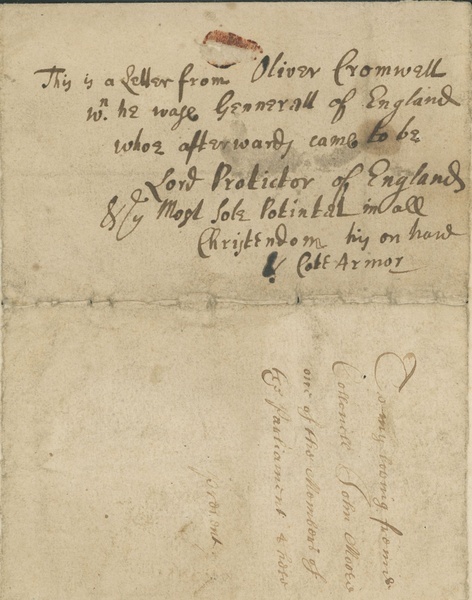 This is a Letter from Oliver Cromwell
wn. he wase Gennerall of England
whoe afterwards came to be
Lord Protictor of England
& ye Most Sole Potintat in all
Christendom his on hand
& Cote Armor
To my loving friend
Collonell John Moore
one of the Members of
the Parliament
present